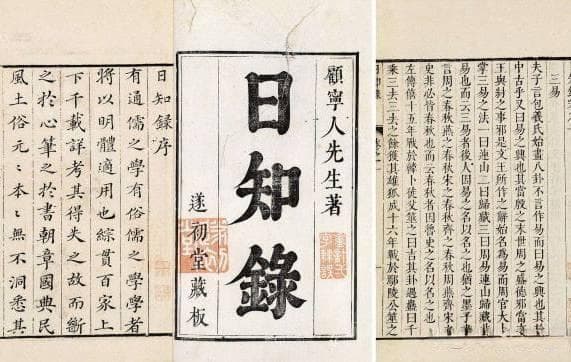 三易
夫子言包羲氏始畫八卦不言作易而曰易之興也其
中古乎又曰易之興也其當殷之末世周之盛德邪當
王與紂之事邪是文王所作之辭始名為易而周官大卜
掌三易之法一曰連山二曰歸藏三曰周易連山歸藏
易也而云三易者後人因易之名以名之也猶之墨子
言周之春秋燕之春秋宋之春秋齊之春秋周燕齊宋
史非必皆春秋也而云春秋者因魯史之名以名之也
左傳僖十五年戰於韓卜徒父筮之曰吉其卦遇蠱曰千
乘三去三去之餘獲其雄狐成十六年戰於鄢陵公筮之
顧寧人先生著
日知錄
遂初堂藏板
日知錄序
有通儒之學有俗儒之學學者
將以明體適用也綜貫百家上
下千載詳考其得失之故而斷
之於心筆之於書朝章國典民
風土俗元〻本〻無不洞悉其